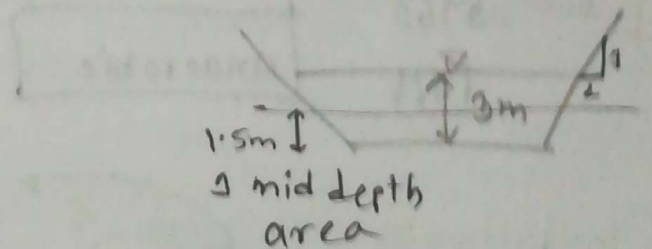 1
2
3m
1.5m
1 mid depth
area